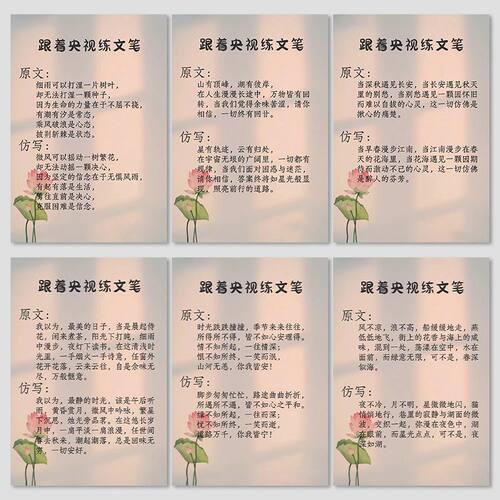 跟着央视练文笔
原文:
细雨可以打湿一片树叶,
却无法打湿一颗种子,
因为生命的力量在于不屈不挠,
有潮有汐是常态,
乘风破浪是心态,
披荆斩棘是状态。
仿写:
微风可以摇动一树繁花,
却无法动摇一颗决心,
因为坚定的信念在于无惧风雨,
有起有落是生活,
勇往直前是决心,
克服困难是信念。
跟着央视练文笔
原文:
山有顶峰,湖有彼岸,
在人生漫漫长途中,万物皆有回
转,当我们觉得余味苦涩,请你
相信,一切终有回甘。
仿写:
星有轨迹,云有归处,
在宇宙无垠的广阔里,一切都有
规律,当我们面对困惑与迷茫,
请你相信,答案终将如星光般显
现,照亮前行的道路。
跟着央视练文笔
原文:
当深秋遇见长安,当长安遇见秋天
里的别愁,当别愁遇见一颗因怀旧
而难以自拔的心灵,这一切仿佛是
揪心的痛楚。
仿写:
当早春漫步江南,当江南漫步在春
天的花海里,当花海遇见一颗因期
待而激动不已的心灵,这一切仿佛
是醉人的芬芳。
跟着央视练文笔
原文:
我以为,最美的日子,当是晨起侍
花,闲来煮茶,阳光下打盹,细雨
中漫步,夜灯下读书,在这清浅时
光里,一手烟火一手诗意,任窗外
花开花落,云来云往,自是余味无
尽,万般惬意。
仿写:
我以为,最静的时光,该是午后听
雨,黄昏赏月,微风中吟咏,繁星
下沉思,烛光旁品茗。在这悠长岁
月中,一肩平淡一肩浪漫,任世间
春去秋来,潮起潮落,总是回味无
穷,一切安好。
跟着央视练文笔
原文:
时光跌跌撞撞,季节来来往往,
所得所不得,皆不如心安理得。
情不知所起,一往情深;
恨不知所终,一笑而泯,
山河无恙,你我皆安!
仿写:
脚步匆匆忙忙,路途曲曲折折,
所遇所不遇,皆不如心之平和。
缘不知所起,一往而深;
忧不知所终,一笑而逝,
道路万千,你我皆宁!
跟着央视练文笔
原文:
风不凉,浪不高,船缓缓地走,燕
低低地飞,街上的花香与海上的咸
味,混到一处,荡漾在空中,水在
面前,而绿意无限,可不是,春深
似海。
仿写:
夜不冷,月不明,星微微地闪,猫
悄悄地行,巷里的寂静与湖面的微
波,交织一起,弥漫在夜色中,湖
在眼前,而星光点点,可不是,夜
深如湖。